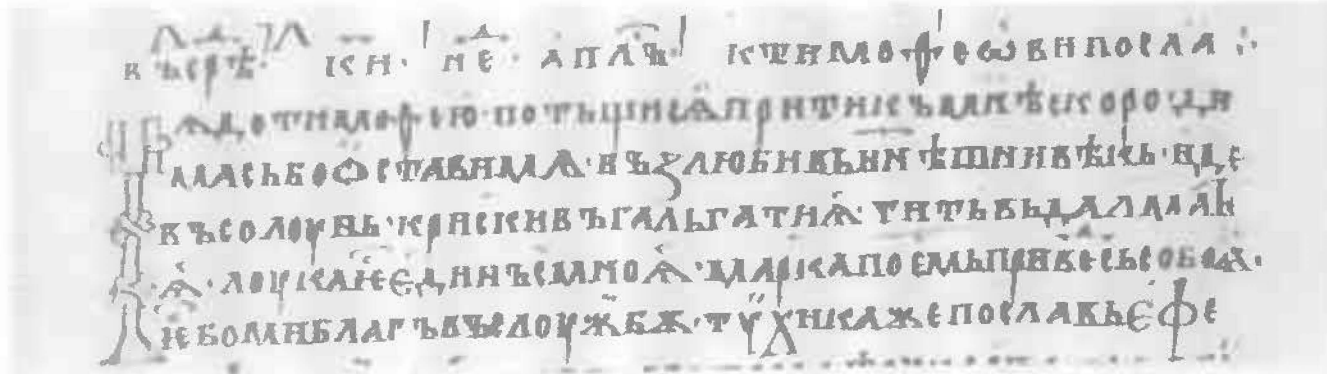 в ъсрѣ· кн· н҃е· апл҃ъ· ктимоѳеѡви посла ⁘
Чѧдотимофею·потъщисѧпритикъмнѣскоро·ди
масьбоѡставимѧ·възлюбивьнꙑнѣшнивѣкь·иде
въсолоунь·крискивъгальгатиѧ̇·титьвьдалмат
ѧ̇·лоукаѥдинъсъмноѧ̇·маркапоемьпривесьсобоѫ·
ѥбомиблагъвъслоужбѫ·тѵ̈хикажепославьефе